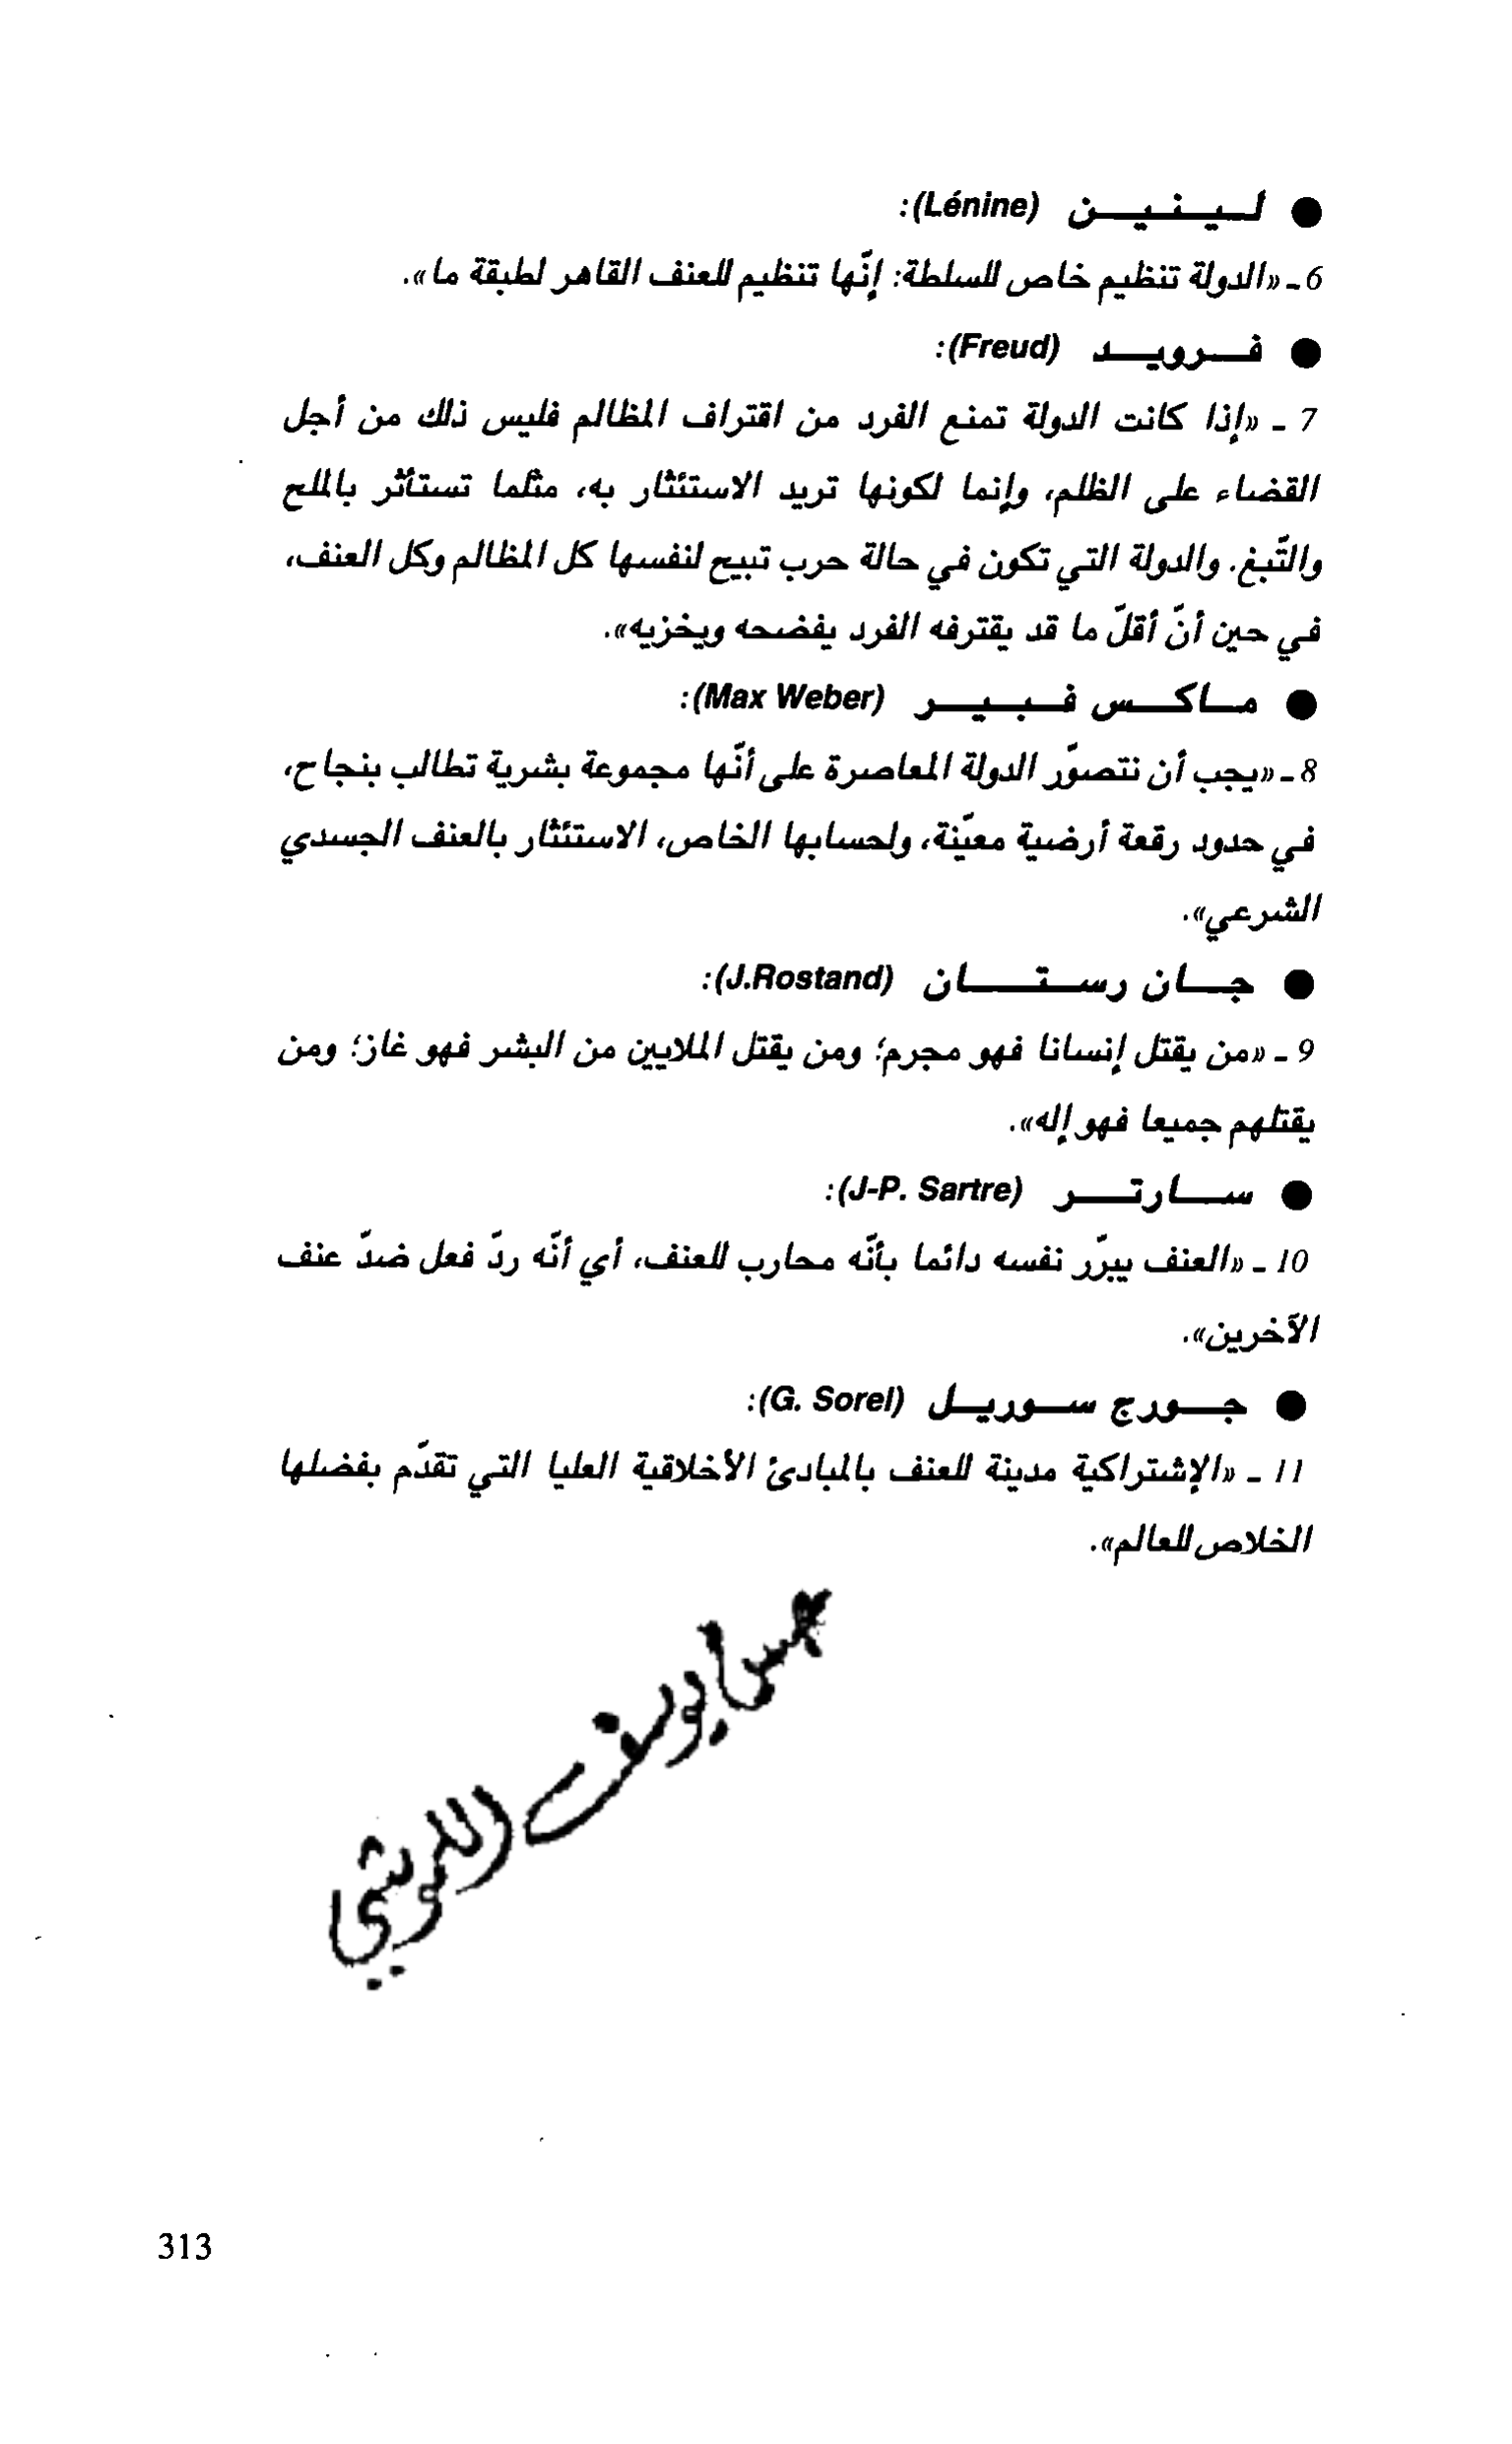 ● لـيـنـيـن (Lénine):
6 ـ «الدولة تنظيم خاص للسلطة: إنّها تنظيم للعنف القاهر لطبقة ما».
● فـرويـد (Freud):
7 ـ «إذا كانت الدولة تمنع الفرد من اقتراف المظالم فليس ذلك من أجل
القضاء على الظلم، وإنما لكونها تريد الاستئثار به، مثلما تستأثر بالملح
والتّبغ. والدولة التي تكون في حالة حرب تبيح لنفسها كل المظالم وكل العنف،
في حين أنّ أقلّ ما قد يقترفه الفرد يفضحه ويخزيه».
● مـاكـس فـبـيـر (Max Weber):
8 ـ «يجب أن نتصوّر الدولة المعاصرة على أنّها مجموعة بشرية تطالب بنجاح،
في حدود رقعة أرضية معيّنة، ولحسابها الخاص، الاستئثار بالعنف الجسدي
الشرعي».
● جـان رسـتـان (J.Rostand):
9 ـ «من يقتل إنسانا فهو مجرم؛ ومن يقتل الملايين من البشر فهو غاز؛ ومن
يقتلهم جميعا فهو إله».
● سـارتـر (J-P. Sartre):
10 ـ «العنف يبرّر نفسه دائما بأنّه محارب للعنف، أي أنّه ردّ فعل ضدّ عنف
الآخرين».
● جـورج سـوريـل (G. Sorel):
11 ـ «الإشتراكية مدينة للعنف بالمبادئ الأخلاقية العليا التي تقدّم بفضلها
الخلاص للعالم».
يوسف
313